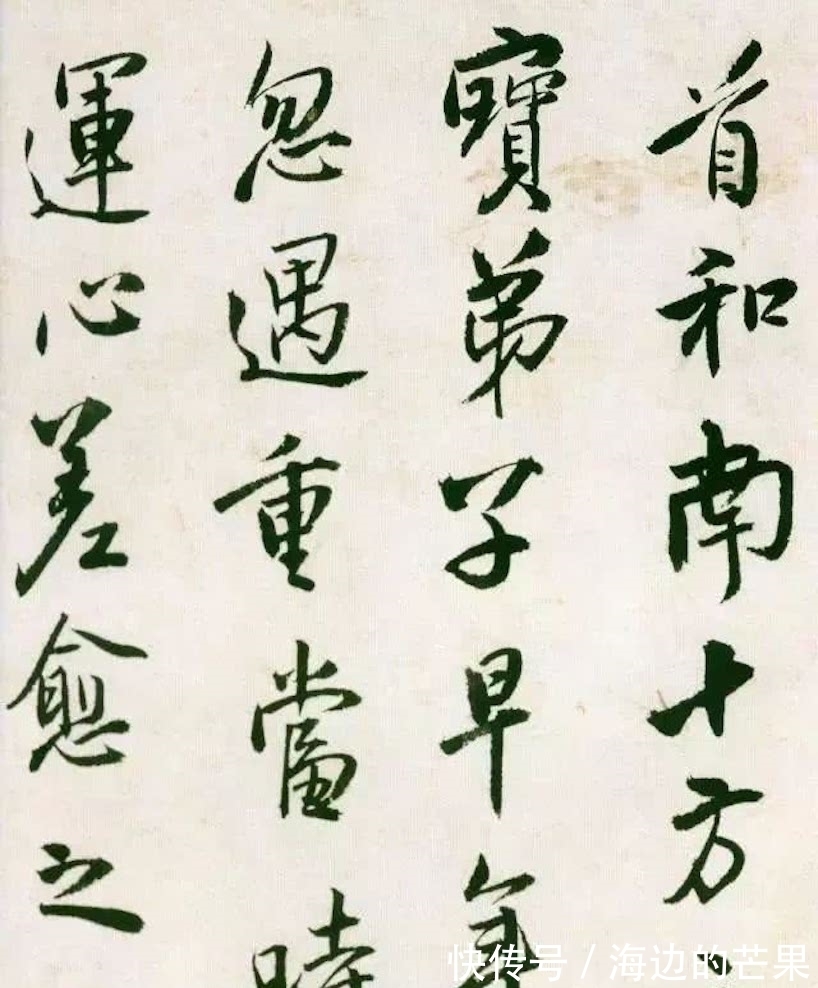 首和南十方
寶弟子早年
忽遇重當時
運心差愈之
快传号 / 海边的芒果